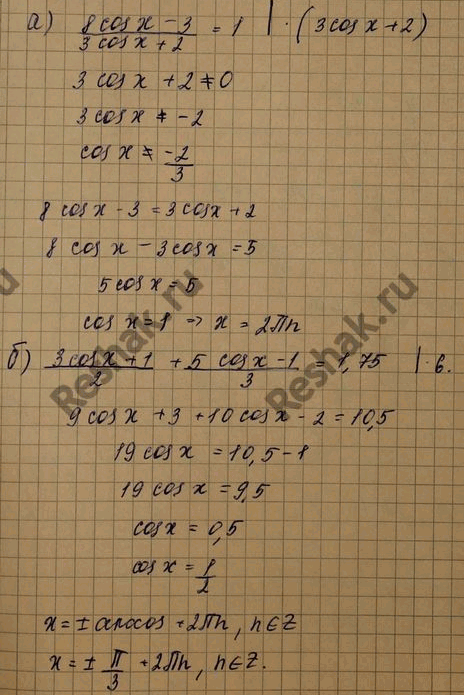 а) (8 cos x - 3)/(3 cos x + 2) = 1 | · (3 cos x + 2)
3 cos x + 2 ≠ 0
3 cos x ≠ -2
cos x ≠ -2/3
8 cos x - 3 = 3 cos x + 2
8 cos x - 3 cos x = 5
5 cos x = 5
cos x = 1 → x = 2πn
б) (3 cos x + 1)/2 + (5 cos x - 1)/3 = 1,75 | · 6.
9 cos x + 3 + 10 cos x - 2 = 10,5
19 cos x = 10,5 - 1
19 cos x = 9,5
cos x = 0,5
cos x = 1/2
x = ± arccos + 2πn, n ∈ Z
x = ± π/3 + 2πn, n ∈ Z.
Reshak.ru
Reshak.ru